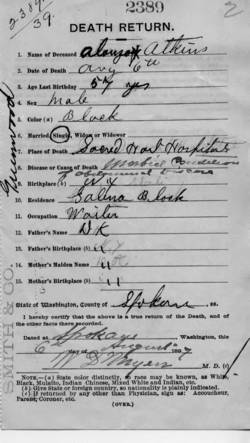 2389
39.
2389
2
DEATH RETURN.
1. Name of Deceased Alonzo Atkins
2. Date of Death Aug 6th
3. Age Last Birthday 57 yrs
4. Sex Male
5. Color (a) Black
6. Married, Single, Widow or Widower
7. Place of Death Sacred Hart Hospital
8. Disease or Cause of Death
Birthplace (b) N.Y.
10. Residence Salina Block
11. Occupation Waiter
12. Father's Name DK
13. Father's Birthplace (b) "
14. Mother's Maiden Name "
15. Mother's Birthplace (b) "
Greenwood
SMITH & CO.
State of Washington, County of Spokane ss.
I hereby certify that the above is a true return of the Death, and of
the other facts there recorded.
Dated at Spokane Washington, this
6 August 1897
Myers M. D. (c)
NOTE.—(a) State color distinctly, so race may be known, as White,
Black, Mulatto, Indian, Chinese, Mixed White and Indian, etc.
(b) Give State or foreign country, so nationality is plainly indicated.
(c) If returned by any other than Physician, sign as: Accoucheur,
Parent, Coroner, etc.
(OVER.)